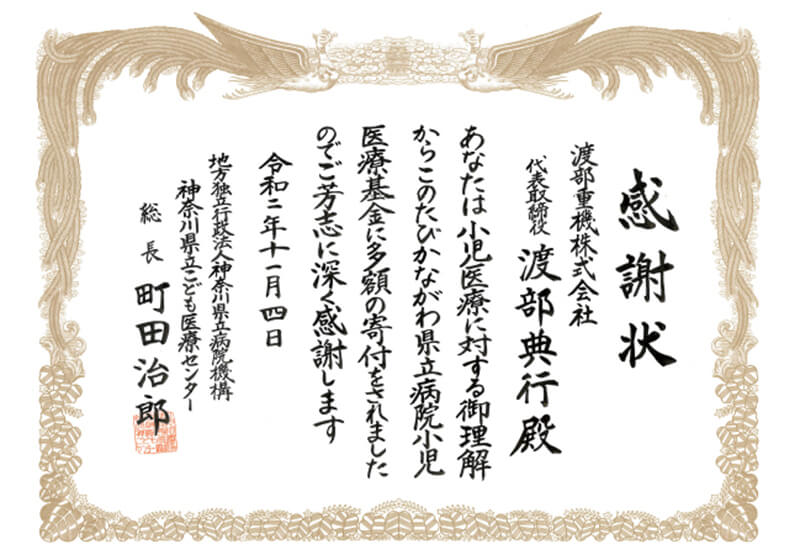 感謝状
渡部重機株式会社
代表取締役 渡部典行殿
あなたは小児医療に対する御理解
からこのたびかながわ県立病院小児
医療基金に多額の寄付をされました
のでご芳志に深く感謝します
令和二年十一月四日
地方独立行政法人神奈川県立病院機構
神奈川県立こども医療センター
総長 町田治郎